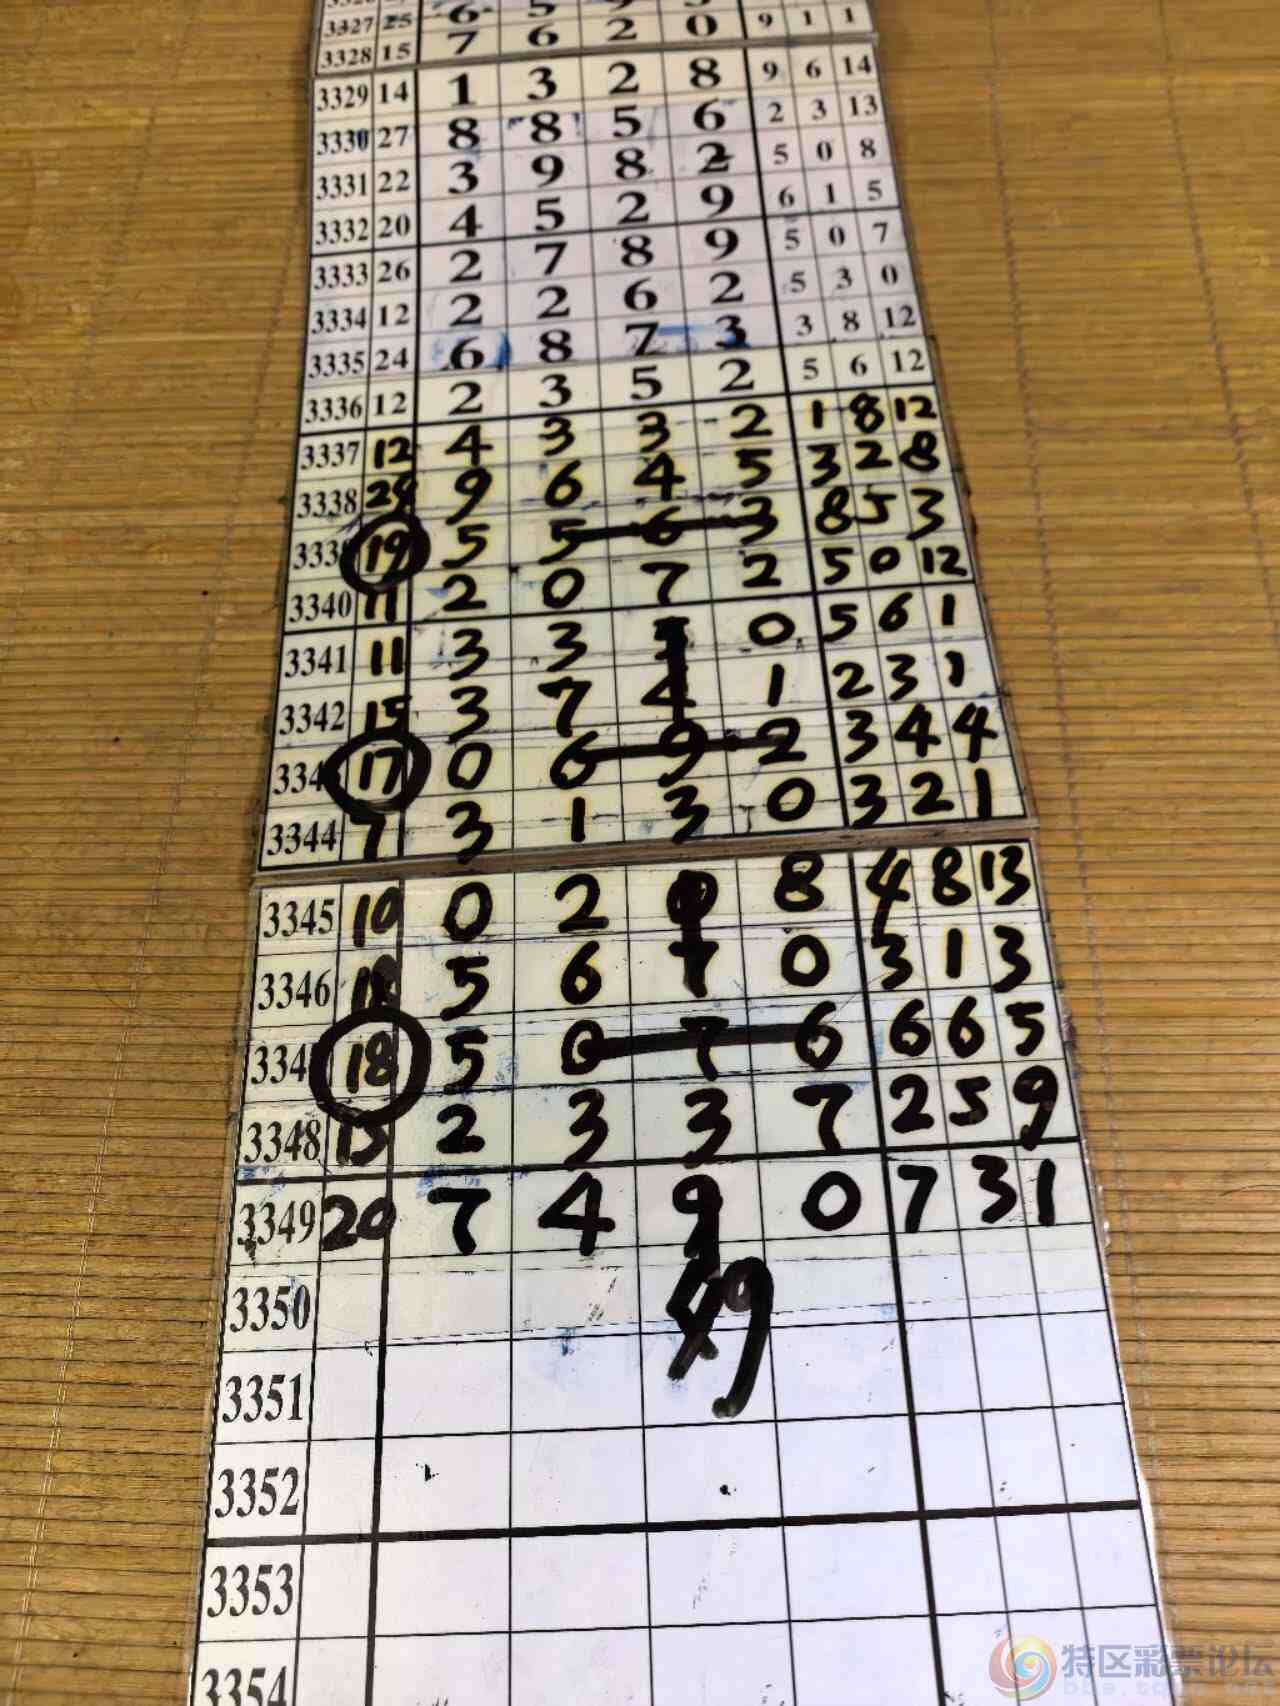 3327 25 6 5 9
3328 15 7 6 2 0 9 1 1
3329 14 1 3 2 8 9 6 14
3330 27 8 8 5 6 2 3 13
3331 22 3 9 8 2 5 0 8
3332 20 4 5 2 9 6 1 5
3333 26 2 7 8 9 5 0 7
3334 12 2 2 6 2 5 3 0
3335 24 6 8 7 3 3 8 12
3336 12 2 3 5 2 5 6 12
3337 12 4 3 3 2 1 8 12
3338 24 9 6 4 5 3 2 8
333 19 5 5 6 3 8 5 3
3340 11 2 0 7 2 5 0 12
3341 11 3 3 5 0 5 6 1
3342 15 3 7 4 1 2 3 1
334 17 0 6 9 2 3 4 4
3344 7 3 1 3 0 3 2 1
3345 10 0 2 0 8 4 8 13
3346 18 5 6 7 0 3 1 3
334 18 5 0 7 6 6 6 5
3348 15 2 3 3 7 2 5 9
3349 20 7 4 9 0 7 3 1
3350 49
3351
3352
3353
3354
特区彩票论坛